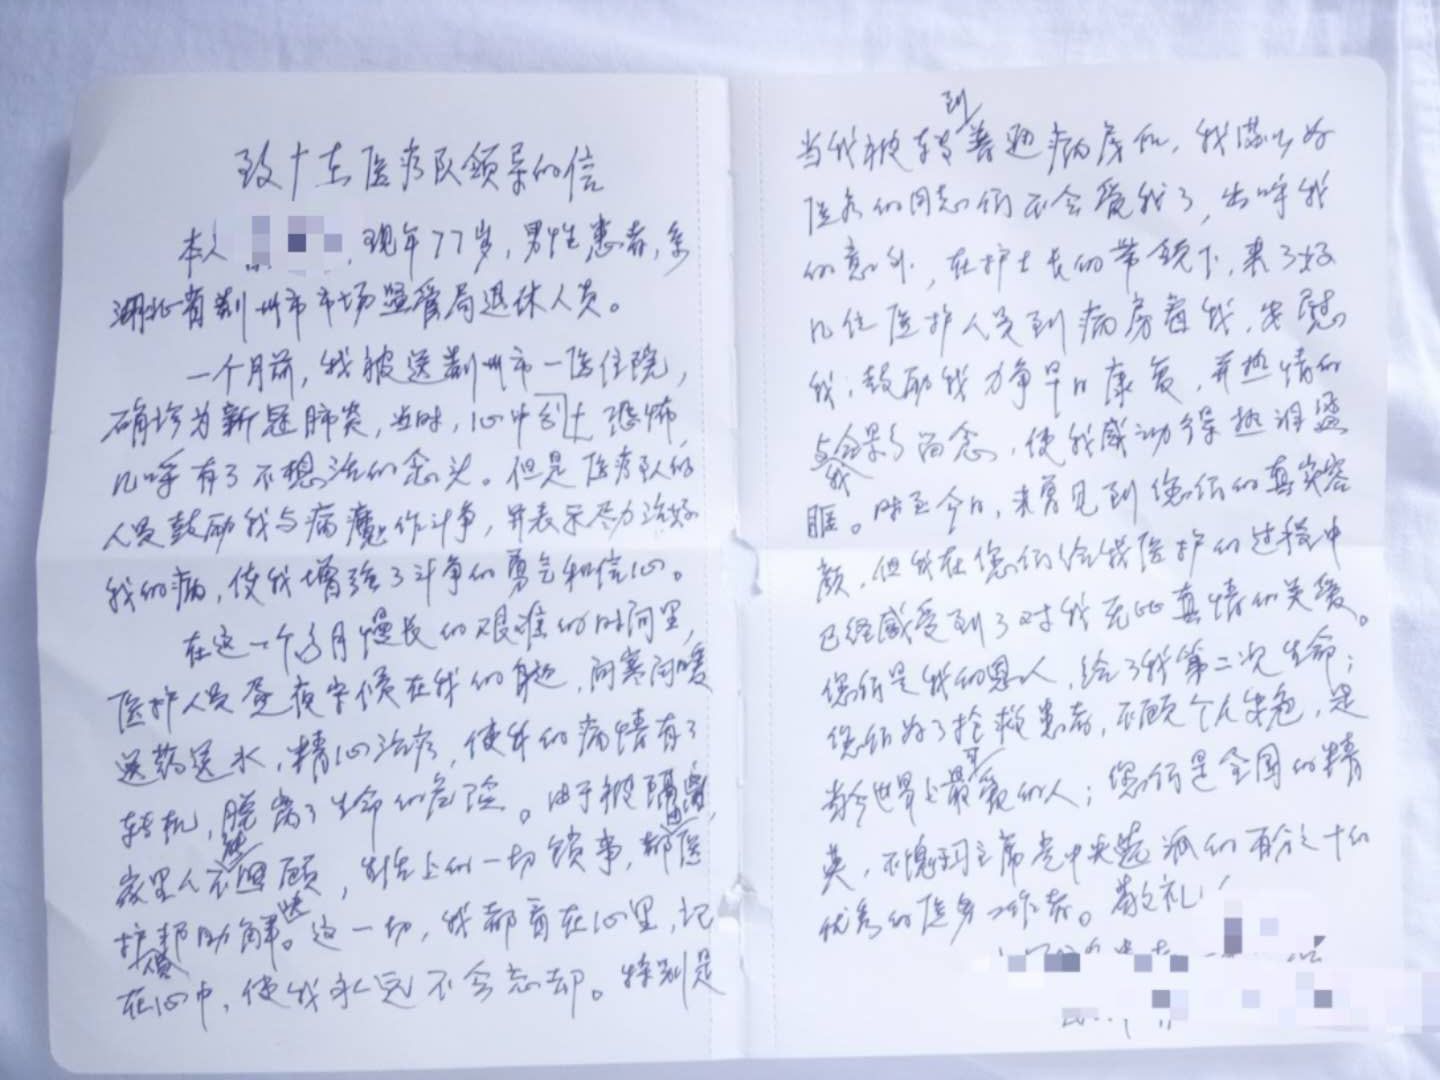 致广东医疗队领导的信
本人，现年77岁，男性患者，系
湖北省荆州市市场监管局退休人员。
一个月前，我被送荆州市一医住院，
确诊为新冠肺炎，当时，心中恐怖，
几呼有了不想活的念头。但是医疗队的
人员鼓励我与病魔作斗争，并表示尽力治好
我的病，使我增强了斗争的勇气和信心。
在这一个多月慢长的艰难的时间里，
医护人员昼夜守候在我的身边，问寒问暖
送药送水，精心治疗，使我的病情有了
转机，脱离了生命的危险。由于被隔离，
家里人不能回顾，生活上的一切锁事，都由医
护人员帮助解决。这一切，我都看在心里，记
在心中，使我永远不会忘却。特别是
当我被转到普通病房后，我以为
医务的同志们不会管我了，出呼我
的意外，在护士长的带领下，来了好
几位医护人员到病房看我，安慰
我，鼓励我力争早日康复，并热情的
与我合影了留念，使我感动得热泪盈
眶。时至今日，未曾见到您们的真实容
颜，但我在您们给我医护的过程中
已经感受到了对我无比真情的关爱。
您们是我的恩人，给了我第二次生命；
您们为了抢救患者，不顾个人安危，是
当今世界上最可爱的人；您们是全国的精
英，不愧习主席党中央选派的百分之十的
优秀的医务工作者。敬礼！